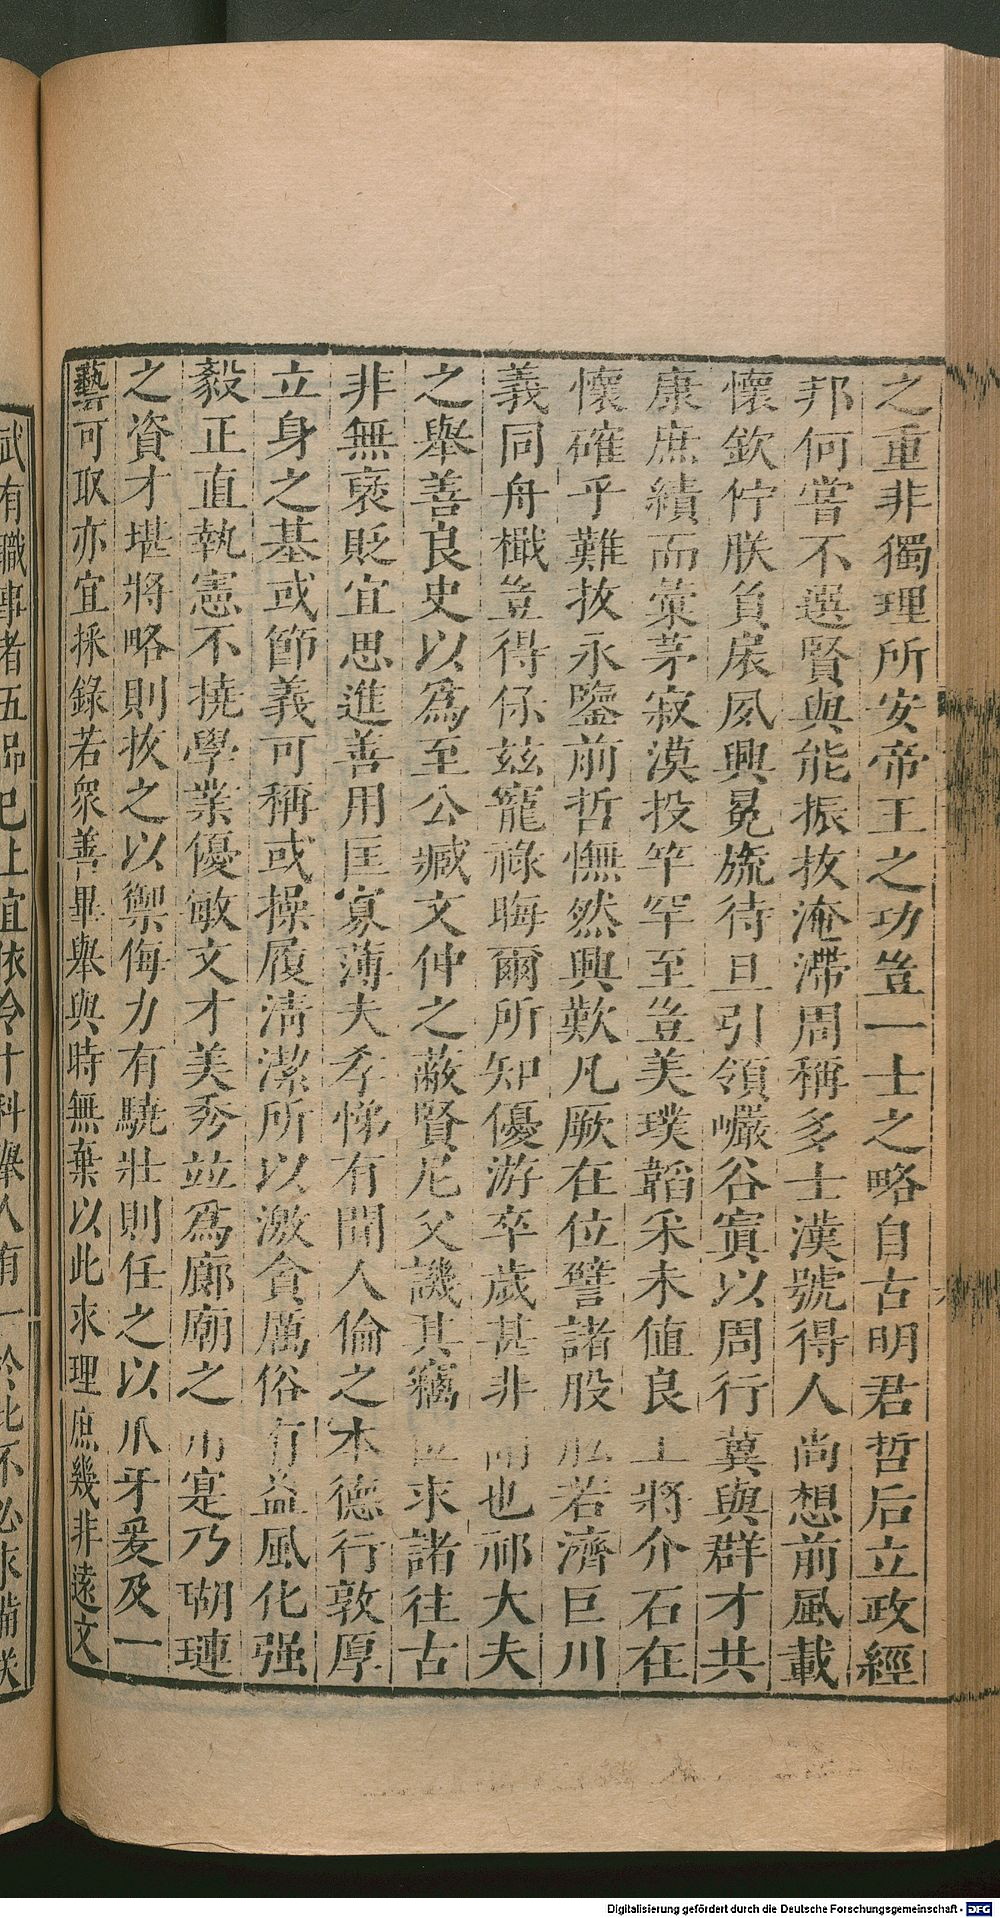 之重非獨理所安帝王之功豈一士之略自古明君哲后立政經
邦何嘗不選賢與能振拔淹滯周稱多士漢號得人尚想前風載
懷欽佇朕負扆夙興冕旒待旦引領巖谷寘以周行冀與群才共
康庶績而彙茅寂漠投竿罕至豈美璞韜采未值良工將介石在
懷確乎難拔永鑒前哲憮然興歎凡厥在位譬諸股肱若濟巨川
義同舟檝豈得保茲寵祿晦爾所知優游卒歲甚非謂也祁大夫
之舉善良史以為至公臧文仲之蔽賢尼父譏其竊位求諸往古
非無褒貶宜思進善用匡寡薄夫孝悌有聞人倫之本德行敦厚
立身之基或節義可稱或操履清潔所以激貪厲俗有益風化强
毅正直執憲不撓學業優敏文才美秀並為廊廟之用寔乃瑚璉
之資才堪將略則拔之以禦侮力有驍壯則任之以爪牙爰及一
藝可取亦宜採錄若眾善畢舉與時無棄以此求理庶幾非遠文
武有職事者五品已上宜依令十科舉人有一於此不必求備朕
Digitalisierung gefördert durch die Deutsche Forschungsgemeinschaft - DFG